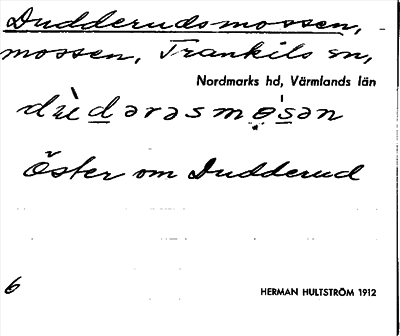 Dudderudsmossen, -
mossen, Trankils sn,
Nordmarks hd, Värmlands län
dùdərəsmo̤sən
Öster om Dudderud
6 HERMAN HULTSTRÖM 1912